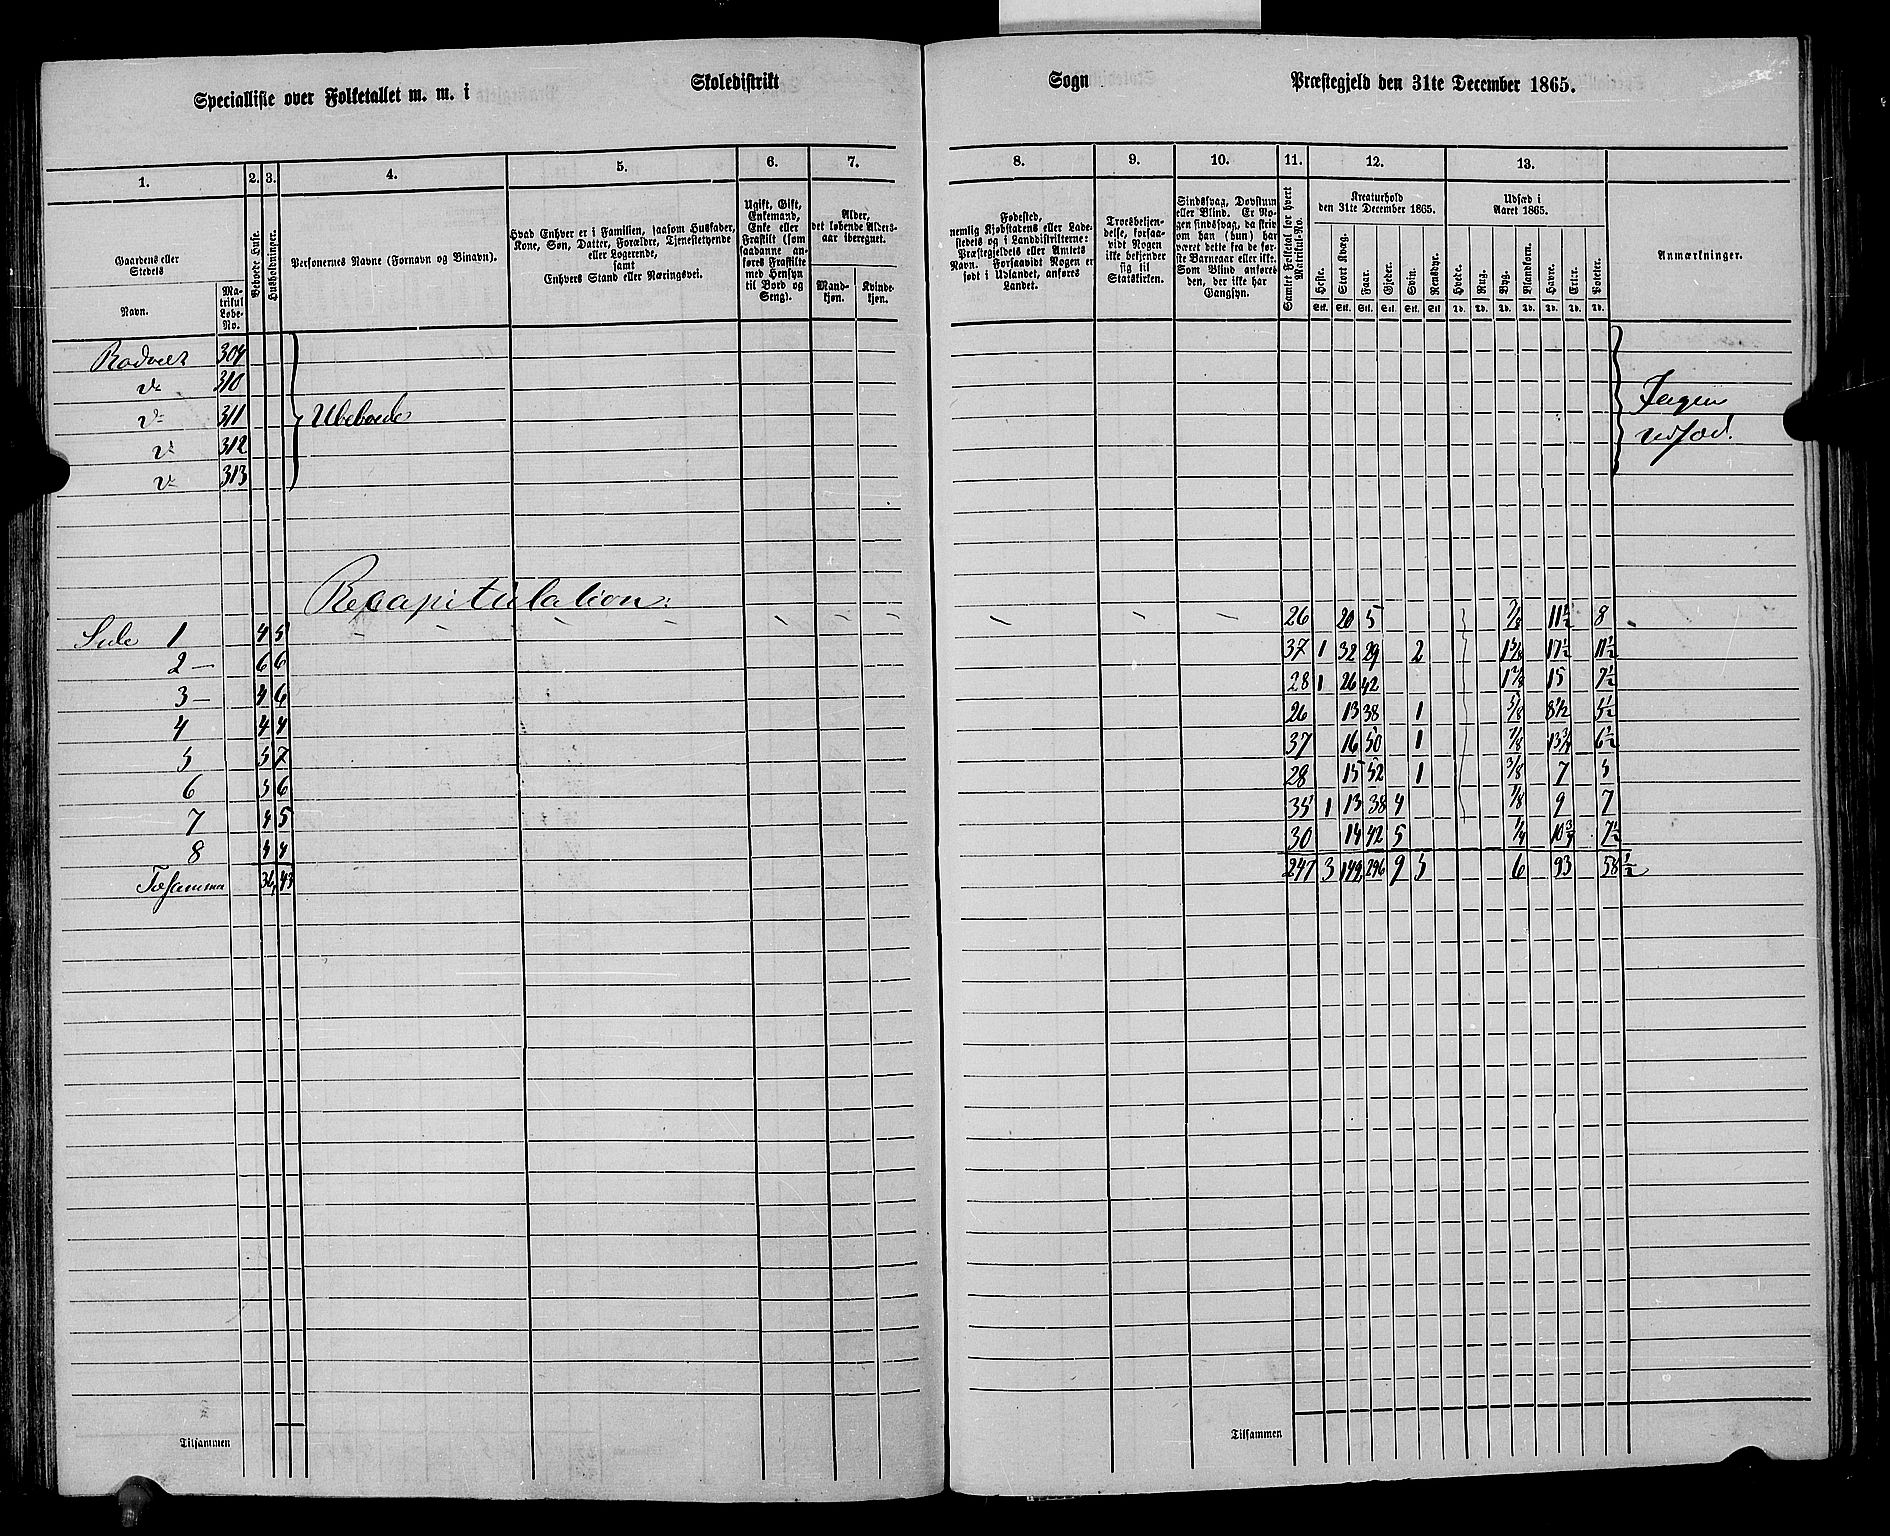 Specialliste over Folketallet m. m. i Skoledistrikt Sogn Præstegjeld den 31te December 1865.
1. 2. 3. 4. 5. 6. 7. 8. 9. 10. 11. 12. 13.
Gaardens eller Stedets
Navn.
Matrikul Løbe-No.
Beboede Huse.
Husholdninger.
Personernes Navne (Fornavn og Binavn).
Hvad Enhver er i Familien, saasom Husfader, Kone, Søn, Datter, Forældre, Tjenestetyende eller Logerende, samt Enhvers Stand eller Næringsvei.
Ugift, Gift, Enkemand, Enke eller Fraskilt (som saadanne anføres Fraskilte med Hensyn til Bord og Seng).
Alder, det løbende Aldersaar iberegnet.
Mandkjøn.
Kvindekjøn.
Fødested, nemlig Kjøbstadens eller Ladestedets og i Landdistrikterne: Præstegjeldets eller Amtets Navn. Forsaavidt Nogen er født i Udlandet, anføres Landet.
Troesbekjendelse, forsaavidt Nogen ikke bekjender sig til Statskirken.
Sindssvag, Døvstum eller Blind. Er Nogen sindssvag, da skrives om han (hun) har været dette fra de første Barneaar eller ikke. Som Blind anføres den, der ikke har Gangsyn.
Samlet Folketal for hvert Matrikul-No.
Kreaturhold den 31te December 1865.
Heste. Stort Kvæg. Faar. Gjeder. Svin. Rensdyr.
Stk. Stk. Stk. Stk. Stk. Stk
Udsæd i Aaret 1865.
Hvede. Rug. Byg. Blandkorn. Havre. Erter. Poteter.
Td. Td. Td. Td. Td. Td. Td.
Anmærkninger.
309
310
311 Ubeboede
312
313
Ingen
udsæd.
Recapitulation:
Side 1 4 5 26 20 5 7/8 11½ 8
2 6 6 37 1 32 29 2 17½ 11½
3 4 6 28 1 26 42 15 7½
4 4 4 26 13 38 1 8½ 5½
5 5 7 37 16 50 1 7/8 13¾ 6½
6 5 6 28 15 52 1 3/8 7 5
7 4 5 35 1 13 38 4 7/8 9 7
8 4 4 30 14 42 5 ¼ 10¾ 7½
Tilsammen 36 43 247 3 149 296 9 5 6 93 58½
Tilsammen
Tilsammen